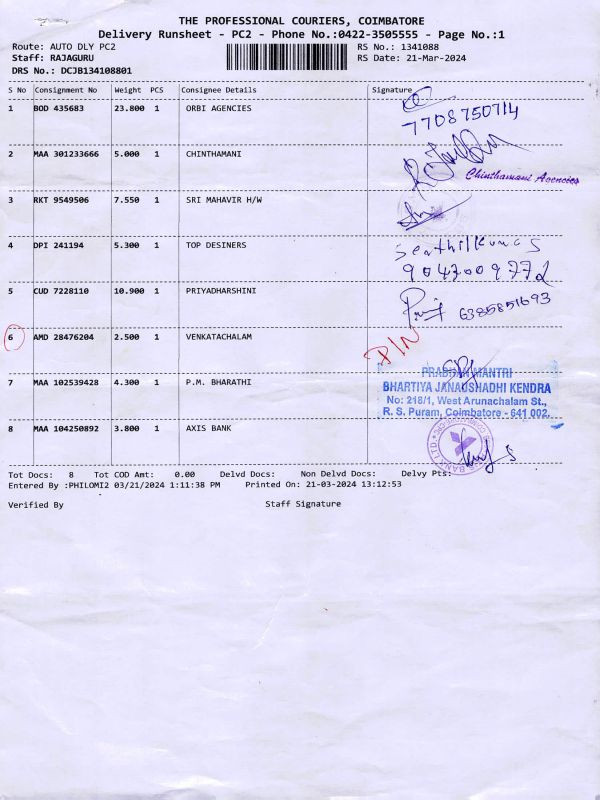 THE PROFESSIONAL COURIERS, COIMBATORE
Delivery Runsheet - PC2 - Phone No.:0422-3505555 - Page No.:1
Route: AUTO DLY PC2
RS No.: 1341088
Staff: RAJAGURU
RS Date: 21-Mar-2024
DRS No.: DCJB134108801
S No Consignment No Weight PCS Consignee Details Signature
1 BOD 435683 23.800 1 ORBI AGENCIES
7708750714
2 MAA 301233666 5.000 1 CHINTHAMANI
Chinthamani Agencies
3 RKT 9549506 7.550 1 SRI MAHAVIR H/W
4 DPI 241194 5.300 1 TOP DESINERS
Senthilkumar
9047009772
5 CUD 7228110 10.900 1 PRIYADHARSHINI
6385851693
6 AMD 28476204 2.500 1 VENKATACHALAM
P/N
7 MAA 102539428 4.300 1 P.M. BHARATHI
PRADHAN MANTRI
BHARTIYA JANAUSHADHI KENDRA
No: 218/1, West Arunachalam St.,
R. S. Puram, Coimbatore - 641 002.
8 MAA 104250892 3.800 1 AXIS BANK
Tot Docs: 8 Tot COD Amt: 0.00 Delvd Docs: Non Delvd Docs: Delvy Pts:
Entered By :PHILOMI2 03/21/2024 1:11:38 PM Printed On: 21-03-2024 13:12:53
Verified By Staff Signature